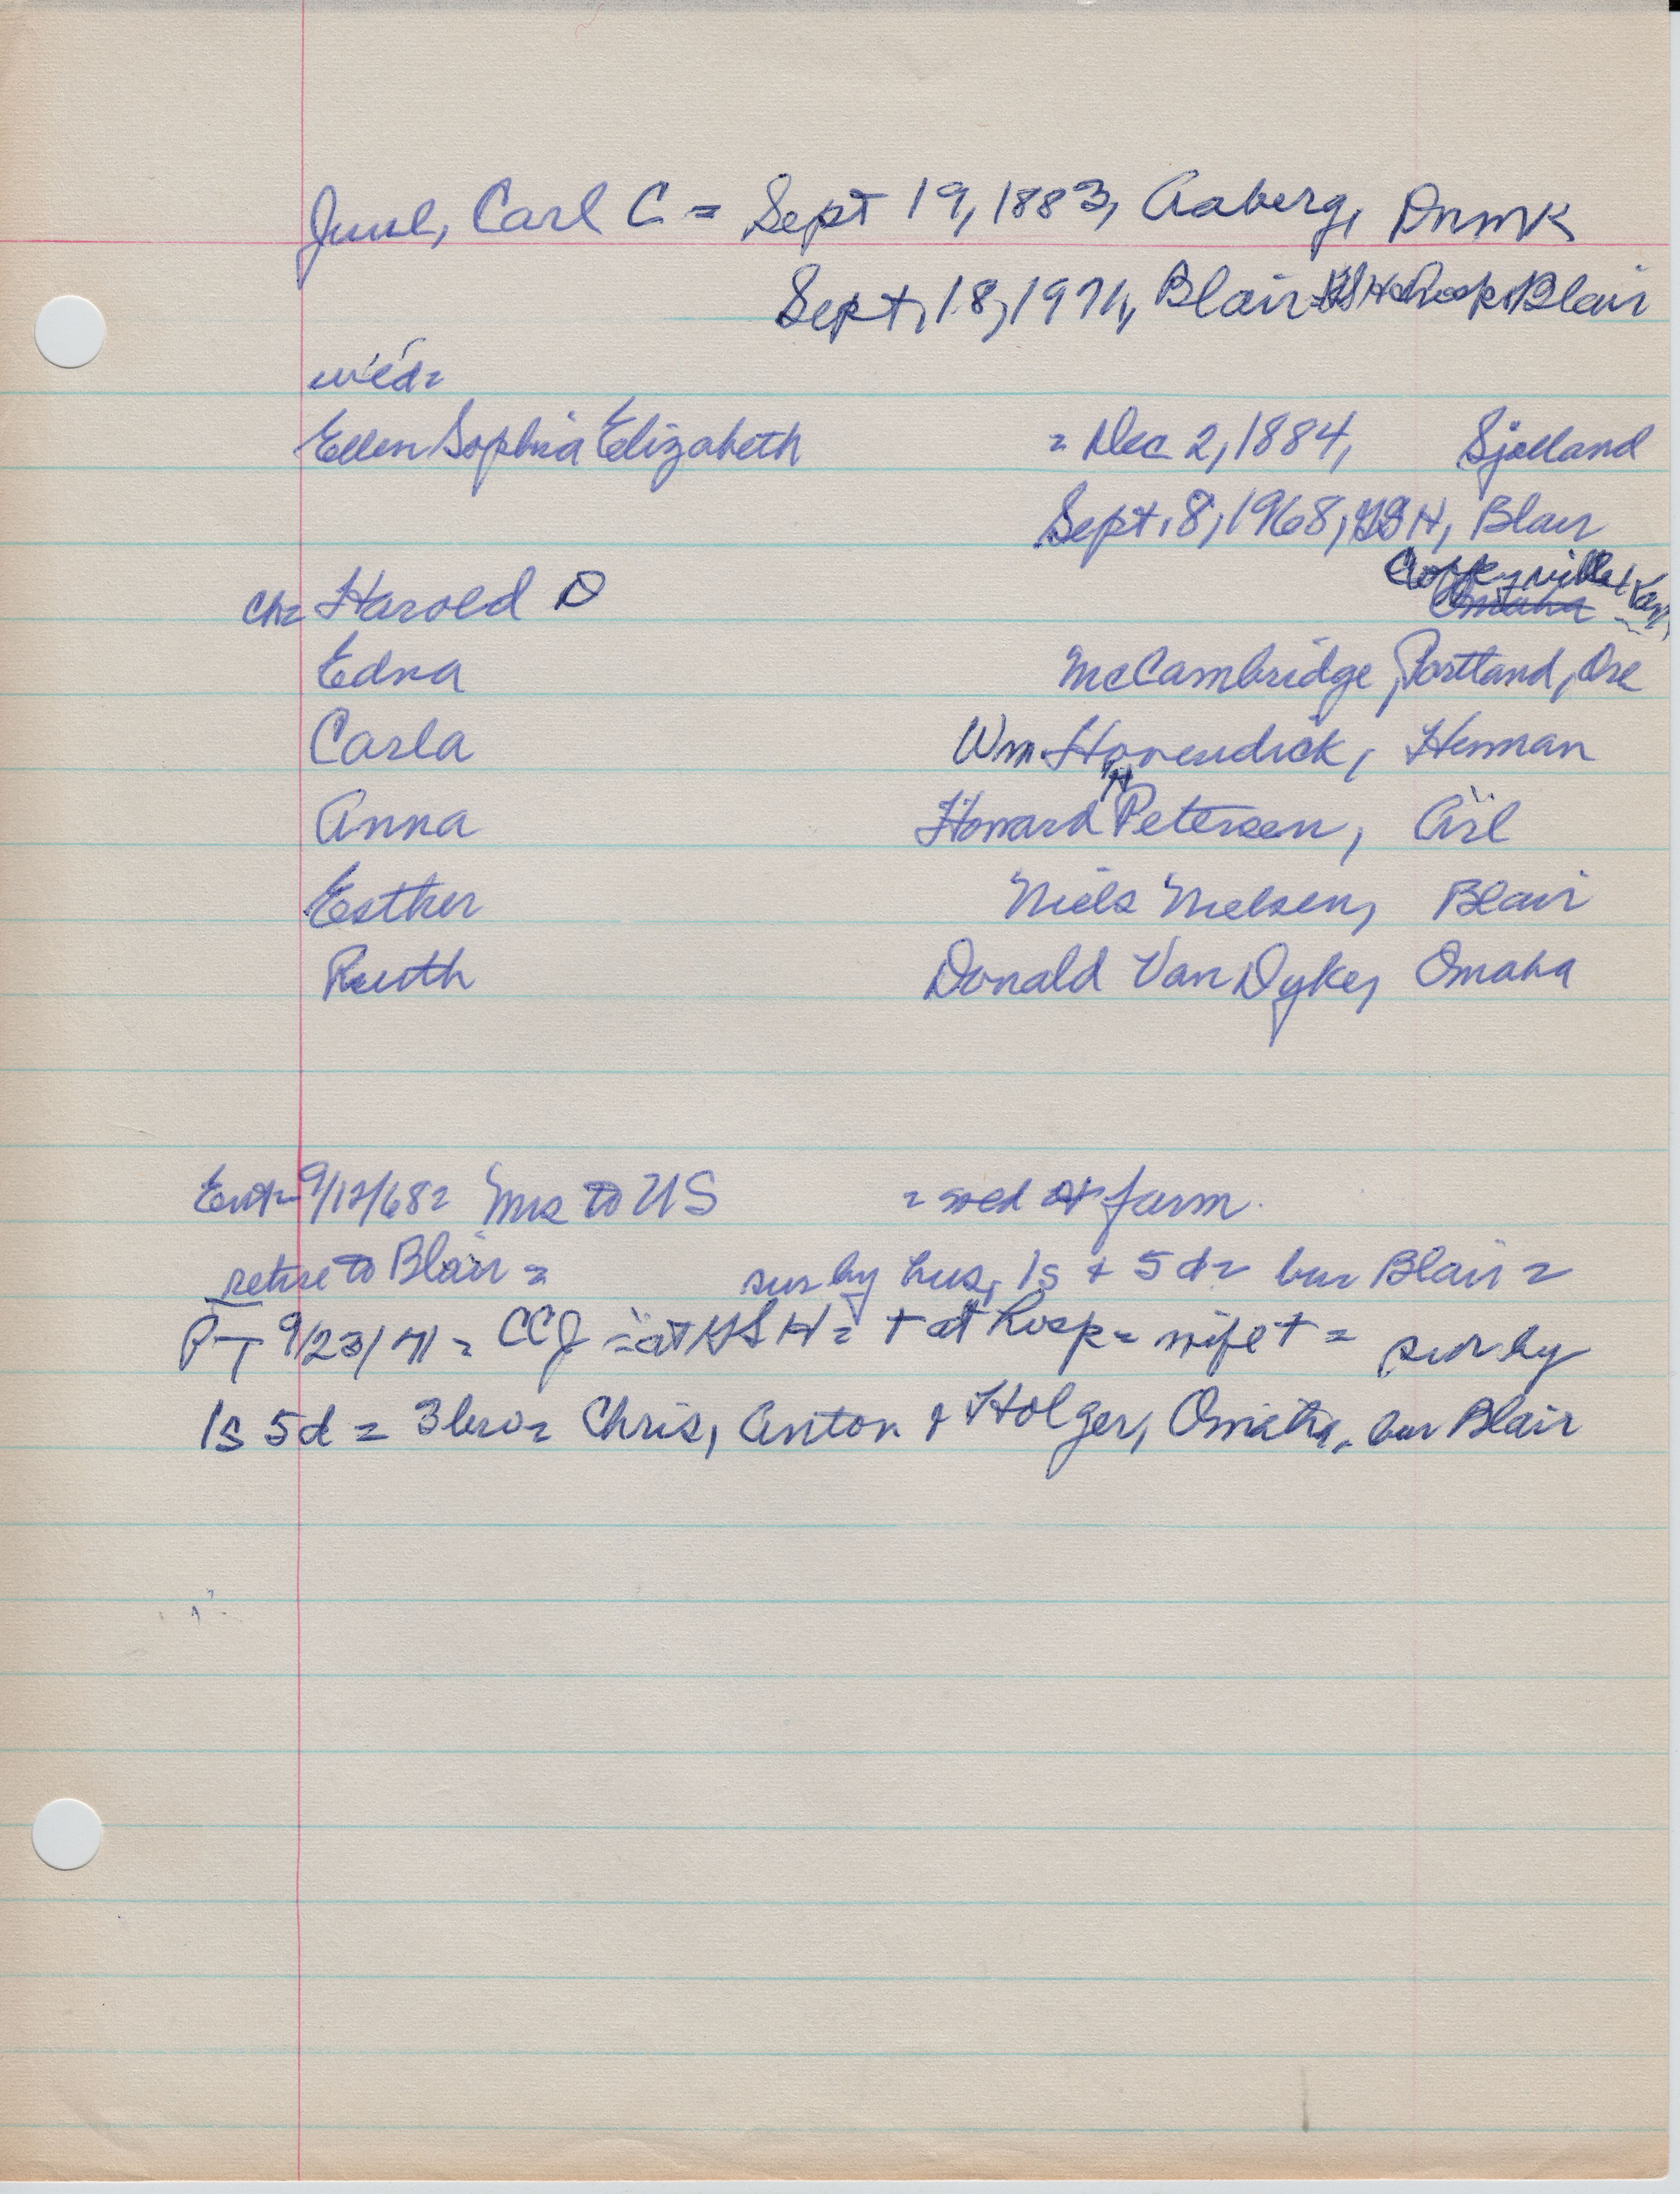 Juul, Carl C = Sept 19, 1883, Aaberg, Dnmk
Sept, 18, 1971, Blair Hosp Blair
wed=
Ellen Sophia Elizabeth = Dec 2, 1884, Sjælland
Sept, 8, 1968, GSH, Blair
Coffeyville, Kan,
ch= Harold D Omaha
Edna McCambridge, Portland, Ore
Carla Wm. Hovendick, Herman
Anna Howard H Petersen, Arl
Esther Niels Nielsen, Blair
Ruth Donald Van Dyke, Omaha
Ent= 9/12/68= Mrs to US = wed at farm.
retire to Blair = sur by hus, 1s + 5d= bur Blair =
P-T 9/23/71 = CCJ = at GSH= + at hosp= wife + = sur by
1s 5d = 3 bro= Chris, Anton & Holger, Omaha, bur Blair